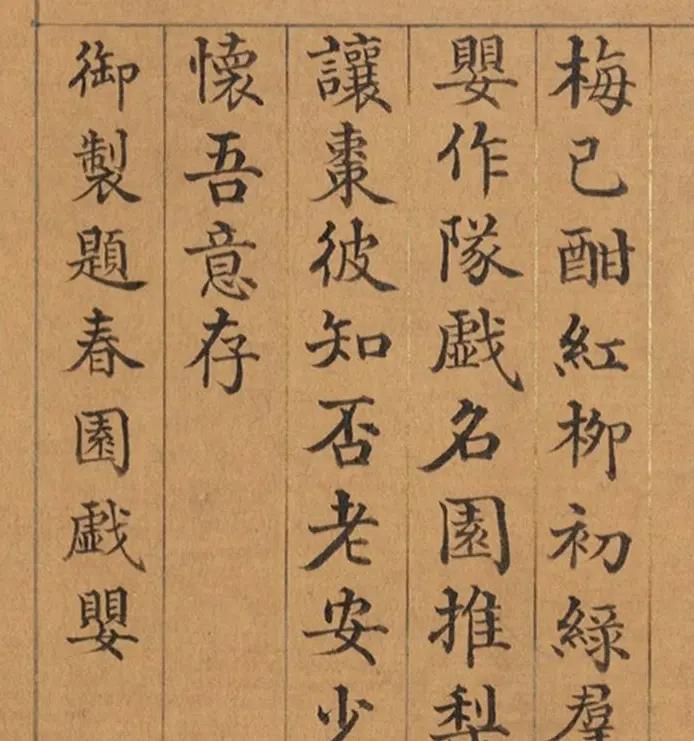 梅已酣紅柳初綠羣
嬰作隊戲名園推梨
讓棗彼知否老安少
懷吾意存
御製題春園戲嬰